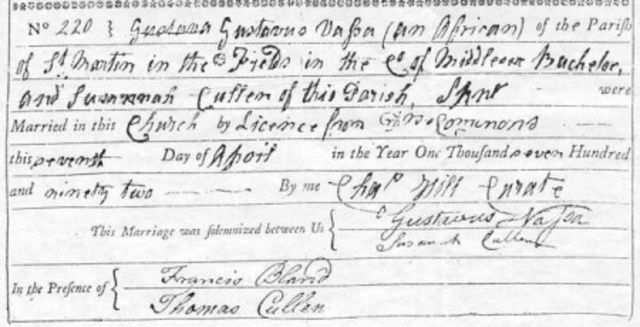 No 220 } Gustava Gustavus Vassa (an African) of the Parish
of St Martin in the Fields in the Co of Middlesex Bachelor,
and Susannah Cullen of this Parish, Spnr were
Married in this Church by Licence from Drs Commons
this seventh Day of April in the Year One Thousand seven Hundred
and ninety two By me Chas Hill Curate
This Marriage was solemnized between Us { Gustavus Vassa
Susanah Cullen
In the Presence of { Francis Bland
Thomas Cullen